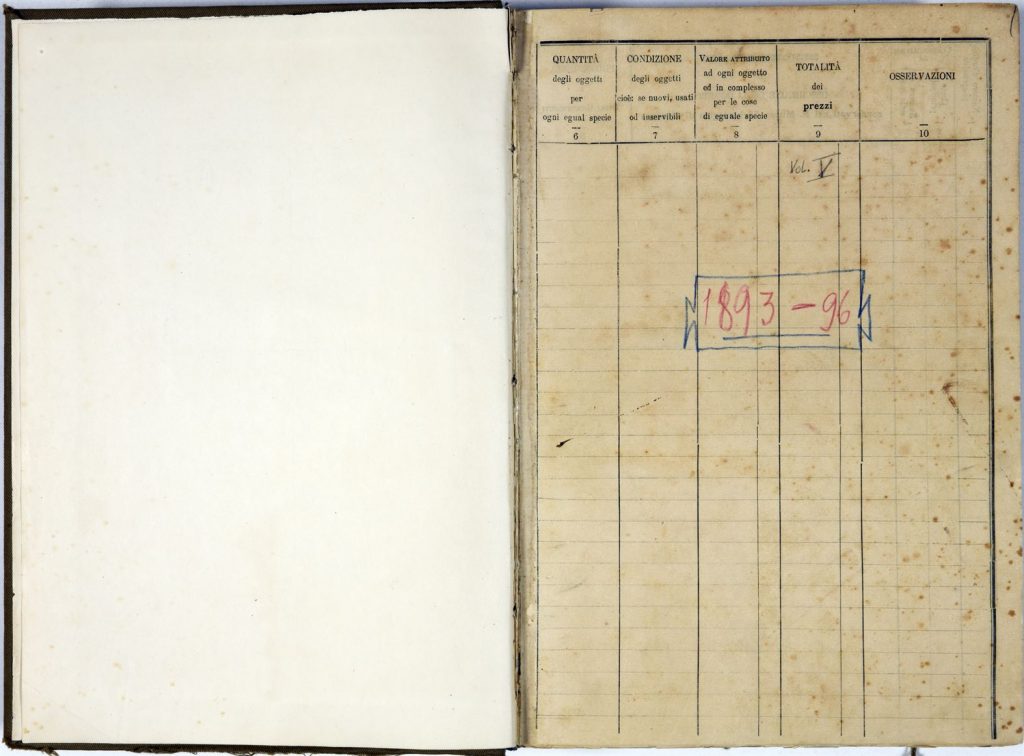 QUANTITÀ
degli oggetti
per
ogni egual specie
6
CONDIZIONE
degli oggetti
cioè: se nuovi, usati
od inservibili
7
VALORE ATTRIBUITO
ad ogni oggetto
ed in complesso
per le cose
di eguale specie
8
TOTALITÀ
dei
prezzi
9
OSSERVAZIONI
10
Vol. V
1893 - 96